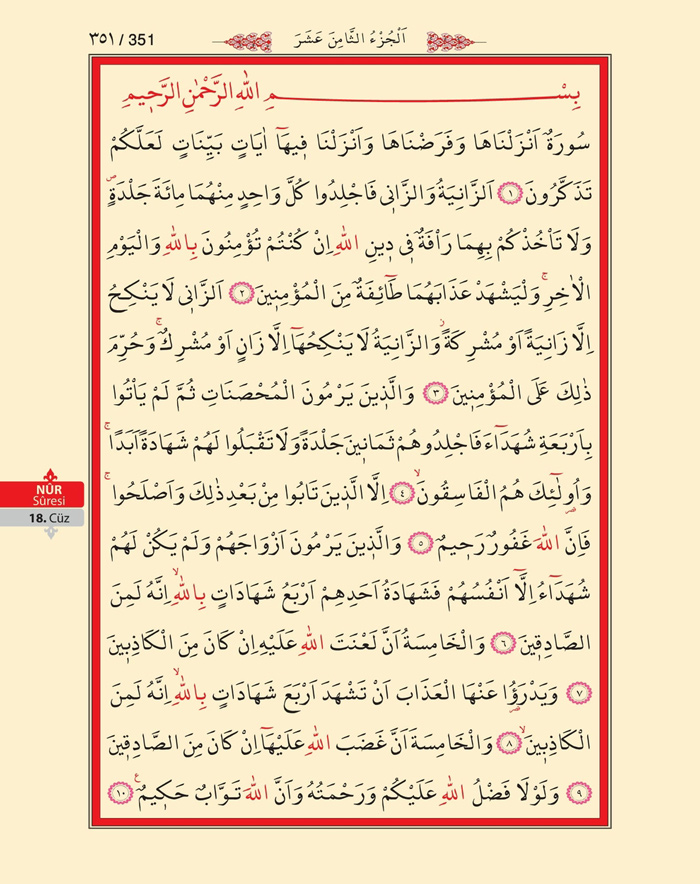 ٣٥١ / 351
اَلْجُزْءُ الثَّامِنَ عَشَرَ
بِسْــــــــمِ اللهِ الرَّحْمٰنِ الرَّحٖيمِ
سُورَةٌ اَنْزَلْنَاهَا وَفَرَضْنَاهَا وَاَنْزَلْنَا فٖيهَٓا اٰيَاتٍ بَيِّنَاتٍ لَعَلَّكُمْ
تَذَكَّرُونَ ﴿١﴾ اَلزَّانِيَةُ وَالزَّانٖى فَاجْلِدُوا كُلَّ وَاحِدٍ مِنْهُمَا مِائَةَ جَلْدَةٍۖ
وَلَا تَأْخُذْكُمْ بِهِمَا رَاْفَةٌ فٖى دٖينِ اللهِ اِنْ كُنْتُمْ تُؤْمِنُونَ بِاللهِ وَالْيَوْمِ
الْاٰخِرِۚ وَلْيَشْهَدْ عَذَابَهُمَا طَٓائِفَةٌ مِنَ الْمُؤْمِنٖينَ ﴿٢﴾ اَلزَّانٖى لَا يَنْكِحُ
اِلَّا زَانِيَةً اَوْ مُشْرِكَةًۘ وَالزَّانِيَةُ لَا يَنْكِحُهَٓا اِلَّا زَانٍ اَوْ مُشْرِكٌۚ وَحُرِّمَ
ذٰلِكَ عَلَى الْمُؤْمِنٖينَ ﴿٣﴾ وَالَّذٖينَ يَرْمُونَ الْمُحْصَنَاتِ ثُمَّ لَمْ يَاْتُوا
بِاَرْبَعَةِ شُهَدَٓاءَ فَاجْلِدُوهُمْ ثَمَانٖينَ جَلْدَةً وَلَا تَقْبَلُوا لَهُمْ شَهَادَةً اَبَدًاۚ
وَاُولٰٓئِكَ هُمُ الْفَاسِقُونَۙ ﴿٤﴾ اِلَّا الَّذٖينَ تَابُوا مِنْ بَعْدِ ذٰلِكَ وَاَصْلَحُواۚ
NÛR
Sûresi
18. Cüz
فَاِنَّ اللهَ غَفُورٌ رَحٖيمٌ ﴿٥﴾ وَالَّذٖينَ يَرْمُونَ اَزْوَاجَهُمْ وَلَمْ يَكُنْ لَهُمْ
شُهَدَٓاءُ اِلَّٓا اَنْفُسُهُمْ فَشَهَادَةُ اَحَدِهِمْ اَرْبَعُ شَهَادَاتٍ بِاللهِۙ اِنَّهُ لَمِنَ
الصَّادِقٖينَ ﴿٦﴾ وَالْخَامِسَةُ اَنَّ لَعْنَتَ اللهِ عَلَيْهِ اِنْ كَانَ مِنَ الْكَاذِبٖينَ
﴿٧﴾ وَيَدْرَؤُا عَنْهَا الْعَذَابَ اَنْ تَشْهَدَ اَرْبَعَ شَهَادَاتٍ بِاللهِۙ اِنَّهُ لَمِنَ
الْكَاذِبٖينَۙ ﴿٨﴾ وَالْخَامِسَةَ اَنَّ غَضَبَ اللهِ عَلَيْهَٓا اِنْ كَانَ مِنَ الصَّادِقٖينَ
﴿٩﴾ وَلَوْلَا فَضْلُ اللهِ عَلَيْكُمْ وَرَحْمَتُهُ وَاَنَّ اللهَ تَوَّابٌ حَكٖيمٌ ﴿١٠﴾